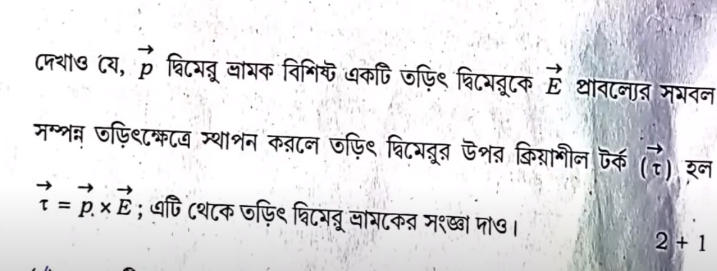 দেখাও যে, $\vec{p}$ দ্বিমেরু ভ্রামক বিশিষ্ট একটি তড়িৎ দ্বিমেরুকে $\vec{E}$ প্রাবল্যের সমবল
সম্পন্ন তড়িৎক্ষেত্রে স্থাপন করলে তড়িৎ দ্বিমেরুর উপর ক্রিয়াশীল টর্ক ($\vec{τ}$) হল
$\vec{τ}$ = $\vec{p}$ × $\vec{E}$ ; এটি থেকে তড়িৎ দ্বিমেরু ভ্রামকের সংজ্ঞা দাও।
2 + 1